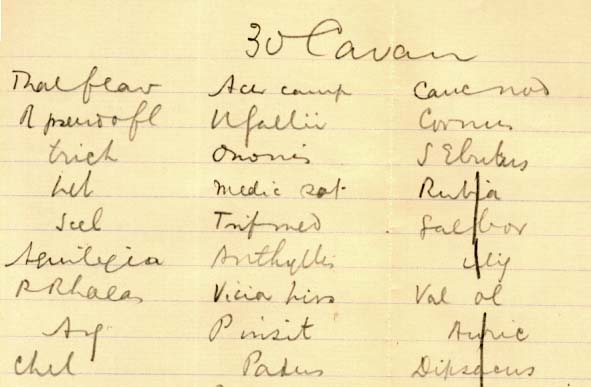 30 Cavan
Thal flav Acer camp Cauc nod
R pseudofl U Gallii Cornus
trich Ononis S Ebulus
het Medic sat Rubia
Scel Trif med Gal bor
Aquilegia Anthyllis ulig
P Rhaeas Vicia hirs Val ol
Arg P insit Auric
Chel Padus Dipsacus